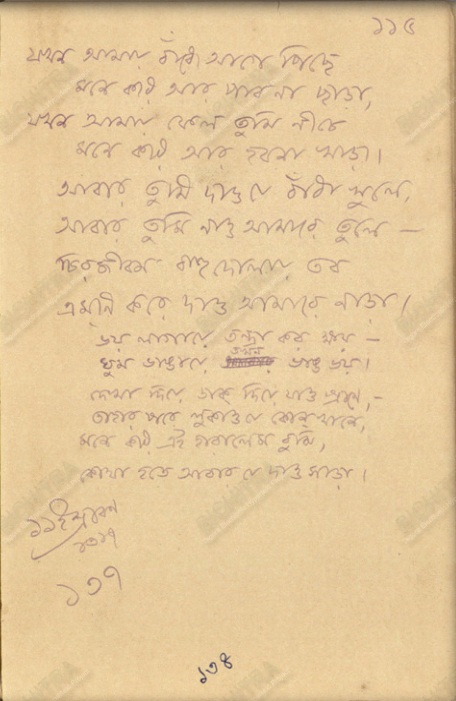 ১১৫
যখন আমায় বাঁধো আগে পিছে
মনে করি আর পাব না ছাড়া,
যখন আমায় ফেল তুমি নীচে
মনে করি আর হবনা খাড়া।
আবার তুমি দাও যে বাঁধন খুলে,
আবার তুমি নাও আমারে তুলে –
চিরজীবন বাহুদোলায় তব
এমনি করে দাও আমারে নাড়া।
ভয় লাগায়ে তন্দ্রা কর ক্ষয় –
তখনি
ঘুম ভাঙায়ে ভাঙ ভয়।
দেখা দিয়ে ডাক দিয়ে যাও প্রাণে, –
তাহার পরে লুকাও যে কোন্ খানে,
মনে করি এই হারালেম তুমি,
কোথা হতে আবার যে দাও সাড়া।
১১ই শ্রাবণ
১৩১৭
১৩৭
১৩৪
BICHITRA